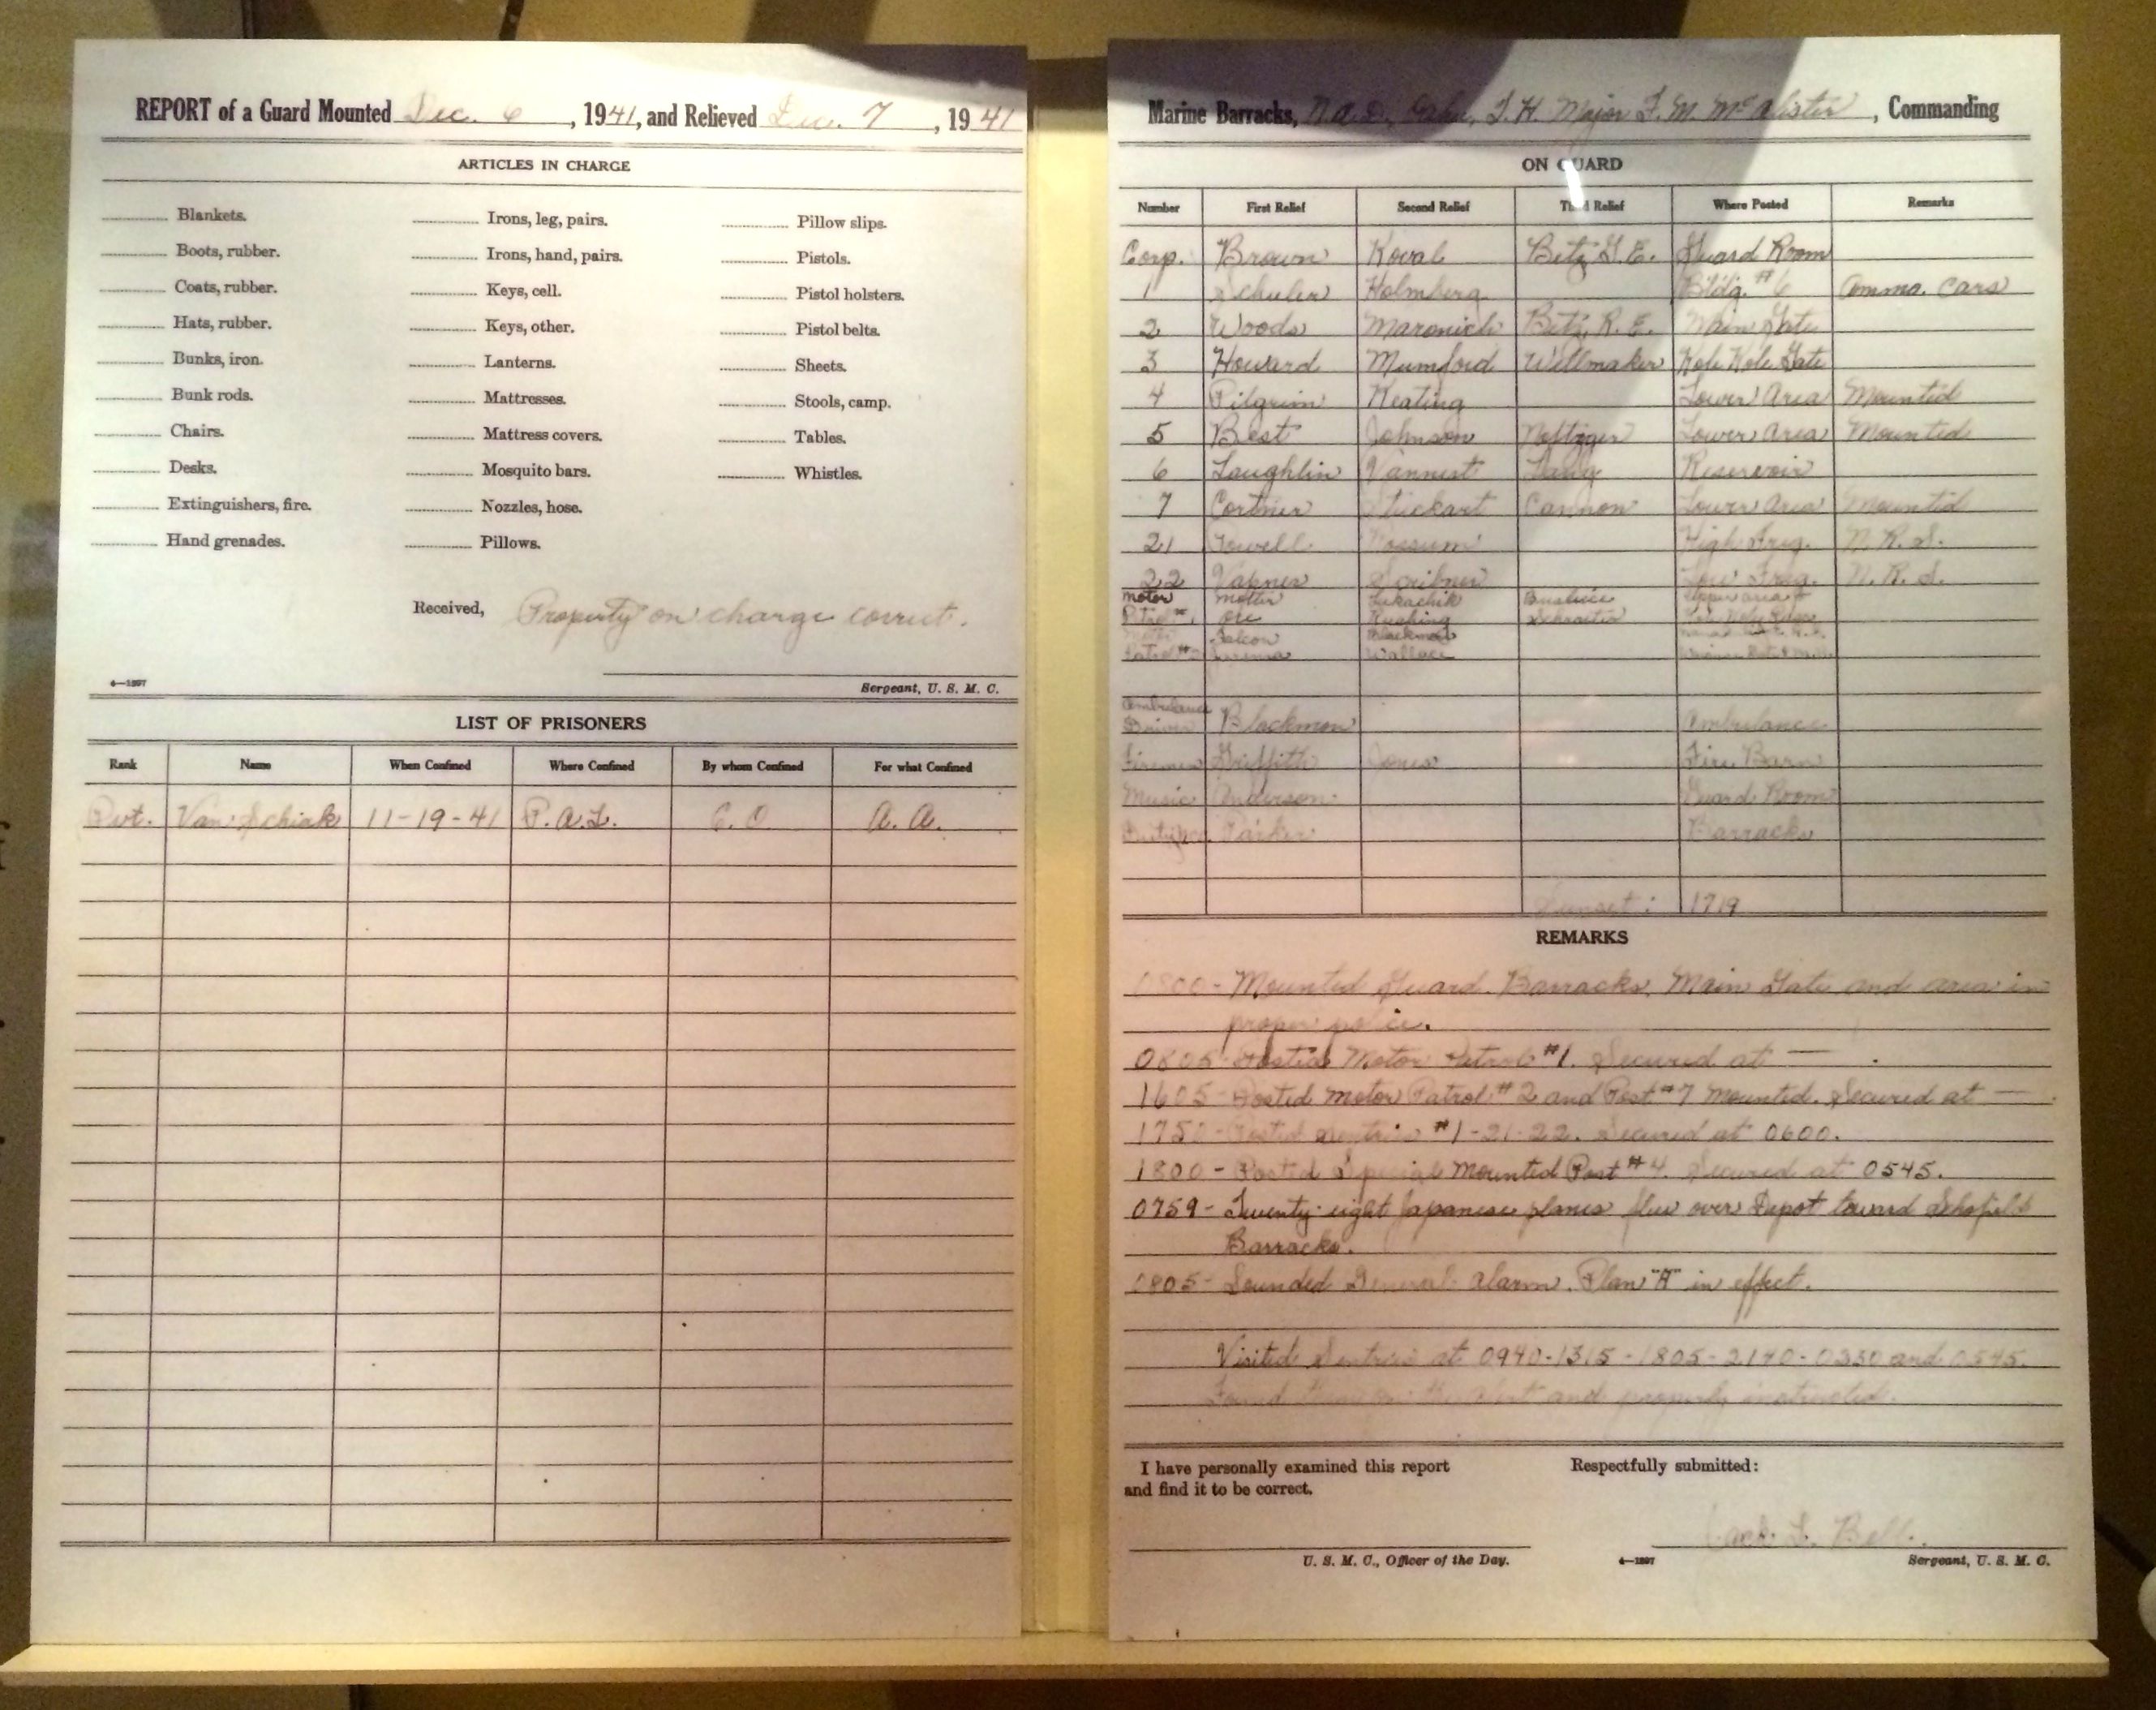 REPORT of a Guard Mounted Dec. 6, 1941, and Relieved Dec. 7, 1941
ARTICLES IN CHARGE
Blankets. Irons, leg, pairs. Pillow slips.
Boots, rubber. Irons, hand, pairs. Pistols.
Coats, rubber. Keys, cell. Pistol holsters.
Hats, rubber. Keys, other. Pistol belts.
Bunks, iron. Lanterns. Sheets.
Bunk rods. Mattresses. Stools, camp.
Chairs. Mattress covers. Tables.
Desks. Mosquito bars. Whistles.
Extinguishers, fire. Nozzles, hose.
Hand grenades. Pillows.
Received, Property on charge correct.
4—1397
Sergeant, U. S. M. C.
LIST OF PRISONERS
Rank Name When Confined Where Confined By whom Confined For what Confined
Pvt. Van Schiak 11-19-41 P.A.L. C. O. A. A.
Marine Barracks, N.A.D., Oahu, T.H. Major F. M. McAlister, Commanding
ON GUARD
Number First Relief Second Relief Third Relief Where Posted Remarks
Corp. Brown Koval Betz G. E. Guard Room
1 Schuler Holmberg Bldg. #6 Ammo. Cars
2 Woods Maronich Betz, R. E. Main Gate
3 Howard Mumford Witlmaker Kole Kole Gate
4 Pilgrim Keating Lower Area Mounted
5 Best Johnson Lower Area Mounted
6 Laughlin Vannest Reservoir
7 Cortner Stickart Cannon Lower Area Mounted
21 Possum High Freq. N. R. S.
22 Scribner Low Freq. N. R. S.
Motor Motter Lukachik Upper area
Patrol #1 Rushing Schraeter
Falcon Blackman
Patrol #2 Wallace
Ambulance
Driver Blackmon Ambulance
Firemen Griffith Jones Fire Barn
Music Anderson Guard Room
Parker Barracks
Sunset: 1719
REMARKS
0800- Mounted Guard. Barracks, Main Gate and area in
proper police.
0805- Posted Motor Patrol #1. Secured at — .
1605- Posted Motor Patrol #2 and Post #7 Mounted. Secured at — .
1750- Posted Sentries #1-21-22. Secured at 0600.
1800- Posted Special Mounted Post #4. Secured at 0545.
0759- Twenty-eight Japanese planes flew over Depot toward Schofield
Barracks.
0805- Sounded General Alarm. Plan "A" in effect.
Visited Sentries at 0940-1315-1805-2140-0330 and 0545.
Found them on the alert and properly instructed.
I have personally examined this report
and find it to be correct.
Respectfully submitted:
Jack L. Bell.
U. S. M. C., Officer of the Day.
4—1397
Sergeant, U. S. M. C.